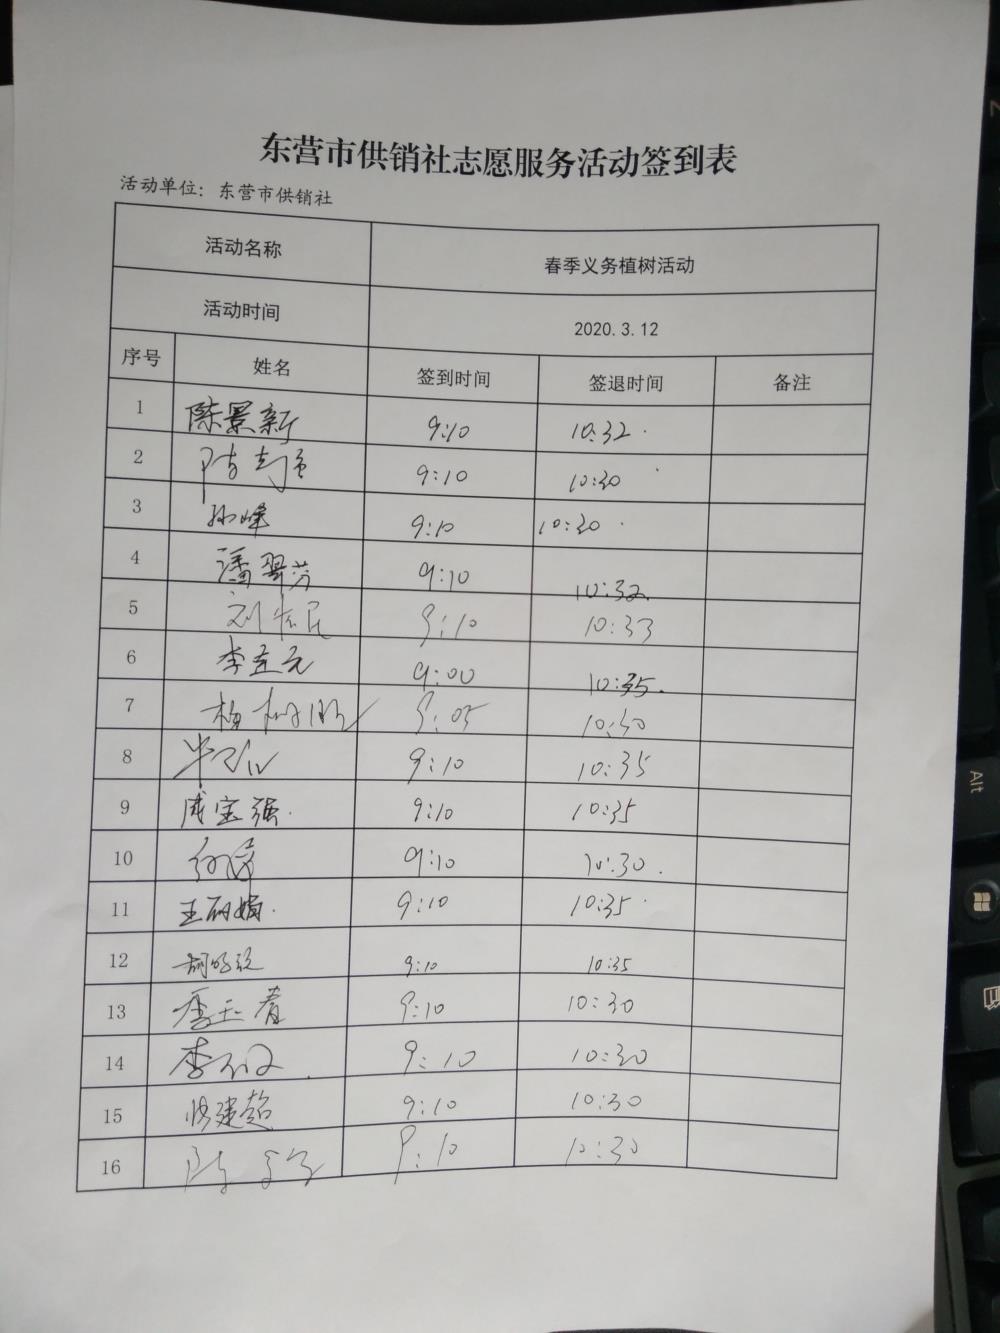 东营市供销社志愿服务活动签到表
活动单位：东营市供销社
活动名称 春季义务植树活动
活动时间 2020.3.12
序号 姓名 签到时间 签退时间 备注
1 陈景新 9:10 10:32
2 9:10 10:30
3 孙峰 9:10 10:30
4 潘翠芳 9:10 10:32
5 9:10 10:33
6 李立元 9:00 10:35
7 9:05 10:30
8 9:10 10:35
9 成宝强 9:10 10:35
10 9:10 10:30
11 王丽娟 9:10 10:35
12 9:10 10:35
13 9:10 10:30
14 9:10 10:30
15 9:10 10:30
16 9:10 10:30
Alt